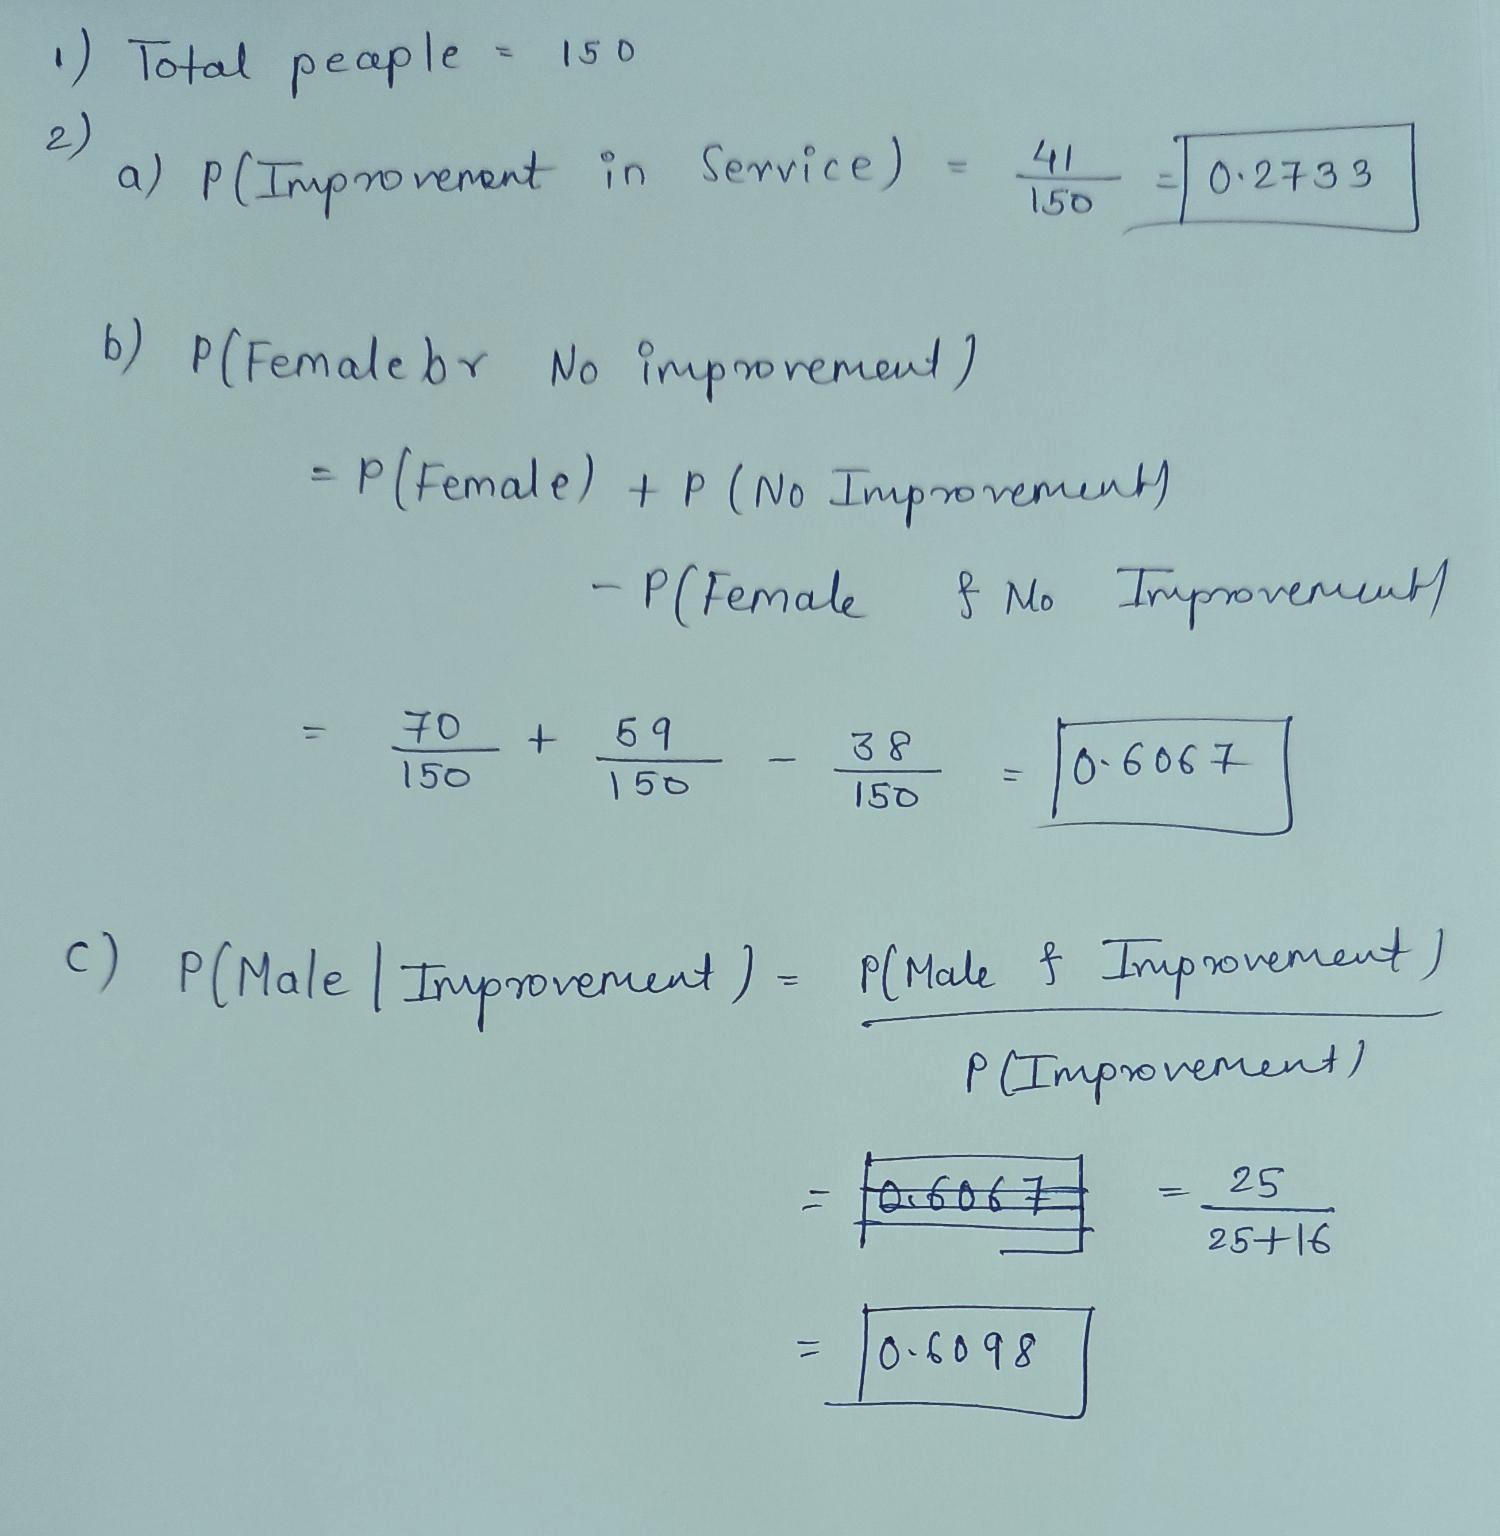 1) Total peaple = 150
2)
a) P(Improvement in Service) = 41/150 = 0.2733
b) P(Female br No improvement)
= P(Female) + P(No Improvement)
- P(Female & No Improvement)
= 70/150 + 59/150 - 38/150 = 0.6067
c) P(Male | Improvement) = P(Male & Improvement)
P(Improvement)
= 0.6067 = 25/25+16
= 0.6098